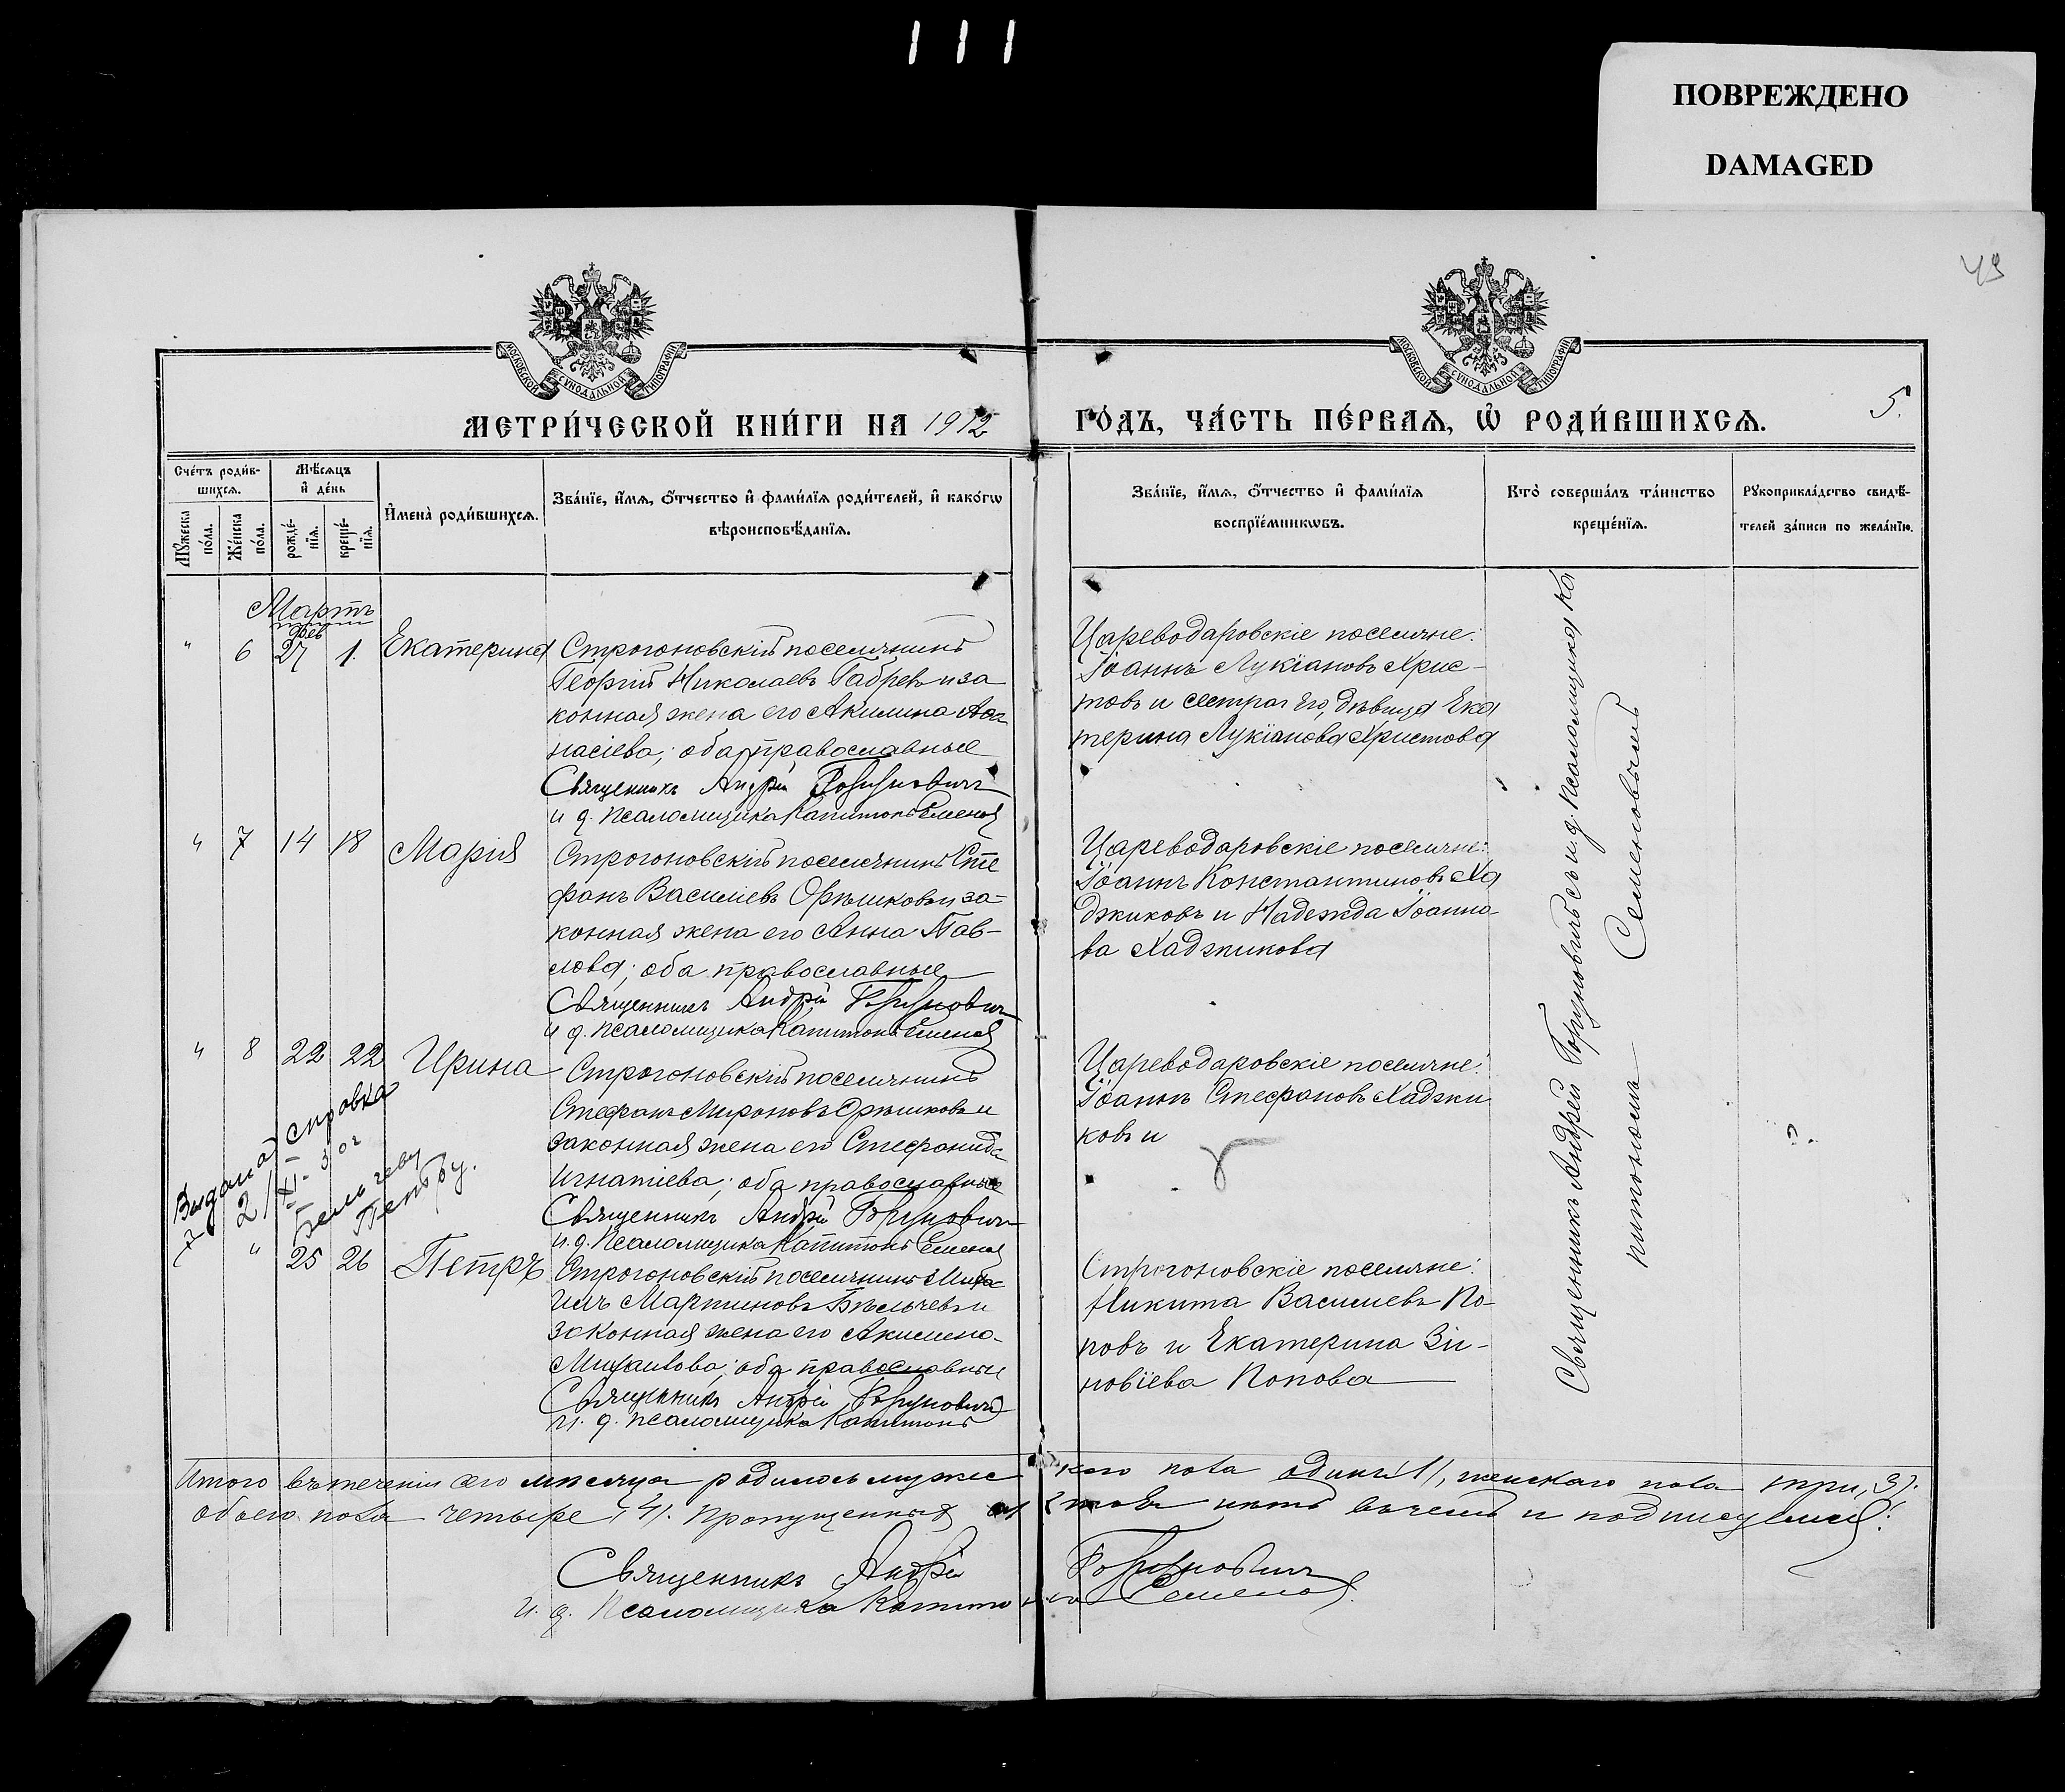 111
ПОВРЕЖДЕНО
DAMAGED
49
МОСКОВСКОЙ СУНОДАЛЬНОЙ ТИПОГРАФІИ
МОСКОВСКОЙ СУНОДАЛЬНОЙ ТИПОГРАФІИ
МЕТРИ́ЧЕСКОЙ КНИ́ГИ НА 1912 ГО́ДЪ, ЧА́СТЬ ПЕ́РВАѦ, Ѡ РОДИ́ВШИХСѦ.
5.
Сче́тъ роди́в-
шихсѧ.
Мѣ́сѧцъ
и де́нь
Мꙋ́жеска
по́ла.
Же́нска
по́ла.
рожде́-
нїѧ.
креще́-
нїѧ.
И҆мена̀ роди́вшихсѧ.
Зва́нїе, и҆́мѧ, ѻ҆́тчество и҆ фами́лїѧ роди́телей, и҆ како́гѡ
вѣроисповѣ́данїѧ.
Зва́нїе, и҆́мѧ, ѻ҆́тчество и҆ фами́лїѧ
воспрїе́мникѡвъ.
Кто̀ соверша́лъ та́инство
креще́нїѧ.
Рꙋкоприкла́дство свидѣ́-
телей за́писи по жела́нїю.
Мартъ
фев
" 6 27 1. Екатерина
Строгоновскій поселянинъ
Георгій Николаевъ Габревъ и за
конная жена его Акилина Аѳа
насіева; оба православные
Священникъ Андрей Горуновичъ
и д. псаломщика Капитонъ Семеновъ
Цареводаровскіе поселяне:
Іоаннъ Лукіановъ Хрис-
товъ и сестра его, дѣвица Ека
терина Лукіанова Христова
" 7 14 18 Марія
Строгоновскій поселянинъ Сте
фанъ Василіевъ Орѣшковъ и за-
конная жена его Анна Пав-
лова; оба православные
Священникъ Андрей Горуновичъ
и д. псаломщика Капитонъ Семеновъ
Цареводаровскіе поселяне:
Іоаннъ Константиновъ Ха
джиковъ и Надежда Іоанно-
ва Хаджикова
" 8 22 22 Ирина
Строгоновскій поселянинъ
Стефанъ Мироновъ Орѣшковъ и
законная жена его Стефанида
Игнатіева; оба православные
Священникъ Андрей Горуновичъ
и.д. псаломщика Капитонъ Семеновъ
Цареводаровскіе поселяне:
Іоаннъ Стефановъ Хаджи
ковъ и
?.
Выдана справка
2/XI-30г
Бельчеву
Петру.
7 " 25 26 Петръ
Строгоновскій поселянинъ Миха
илъ Мартиновъ Бѣльчевъ и
законная жена его Акилина
Михаилова; оба православные
Священникъ Андрей Горуновичъ
и. д. псаломщика Капитонъ
Строгоновскіе поселяне:
Никита Василіевъ По-
повъ и Екатерина Зи-
новіева Попова
Священникъ Андрей Горуновичъ съ и.д. псаломщика Ка
питономъ Семеновымъ
Итого въ теченіи сего мѣсяца родилось мужескаго пола одинъ /1/, женскаго пола три /3/.
обоего пола четыре /4/. Пропущенныхъ
въ чемъ и подписуемся:
Священникъ Андрей Горуновичъ
и. д. Псаломщика Капитонъ Семеновъ.